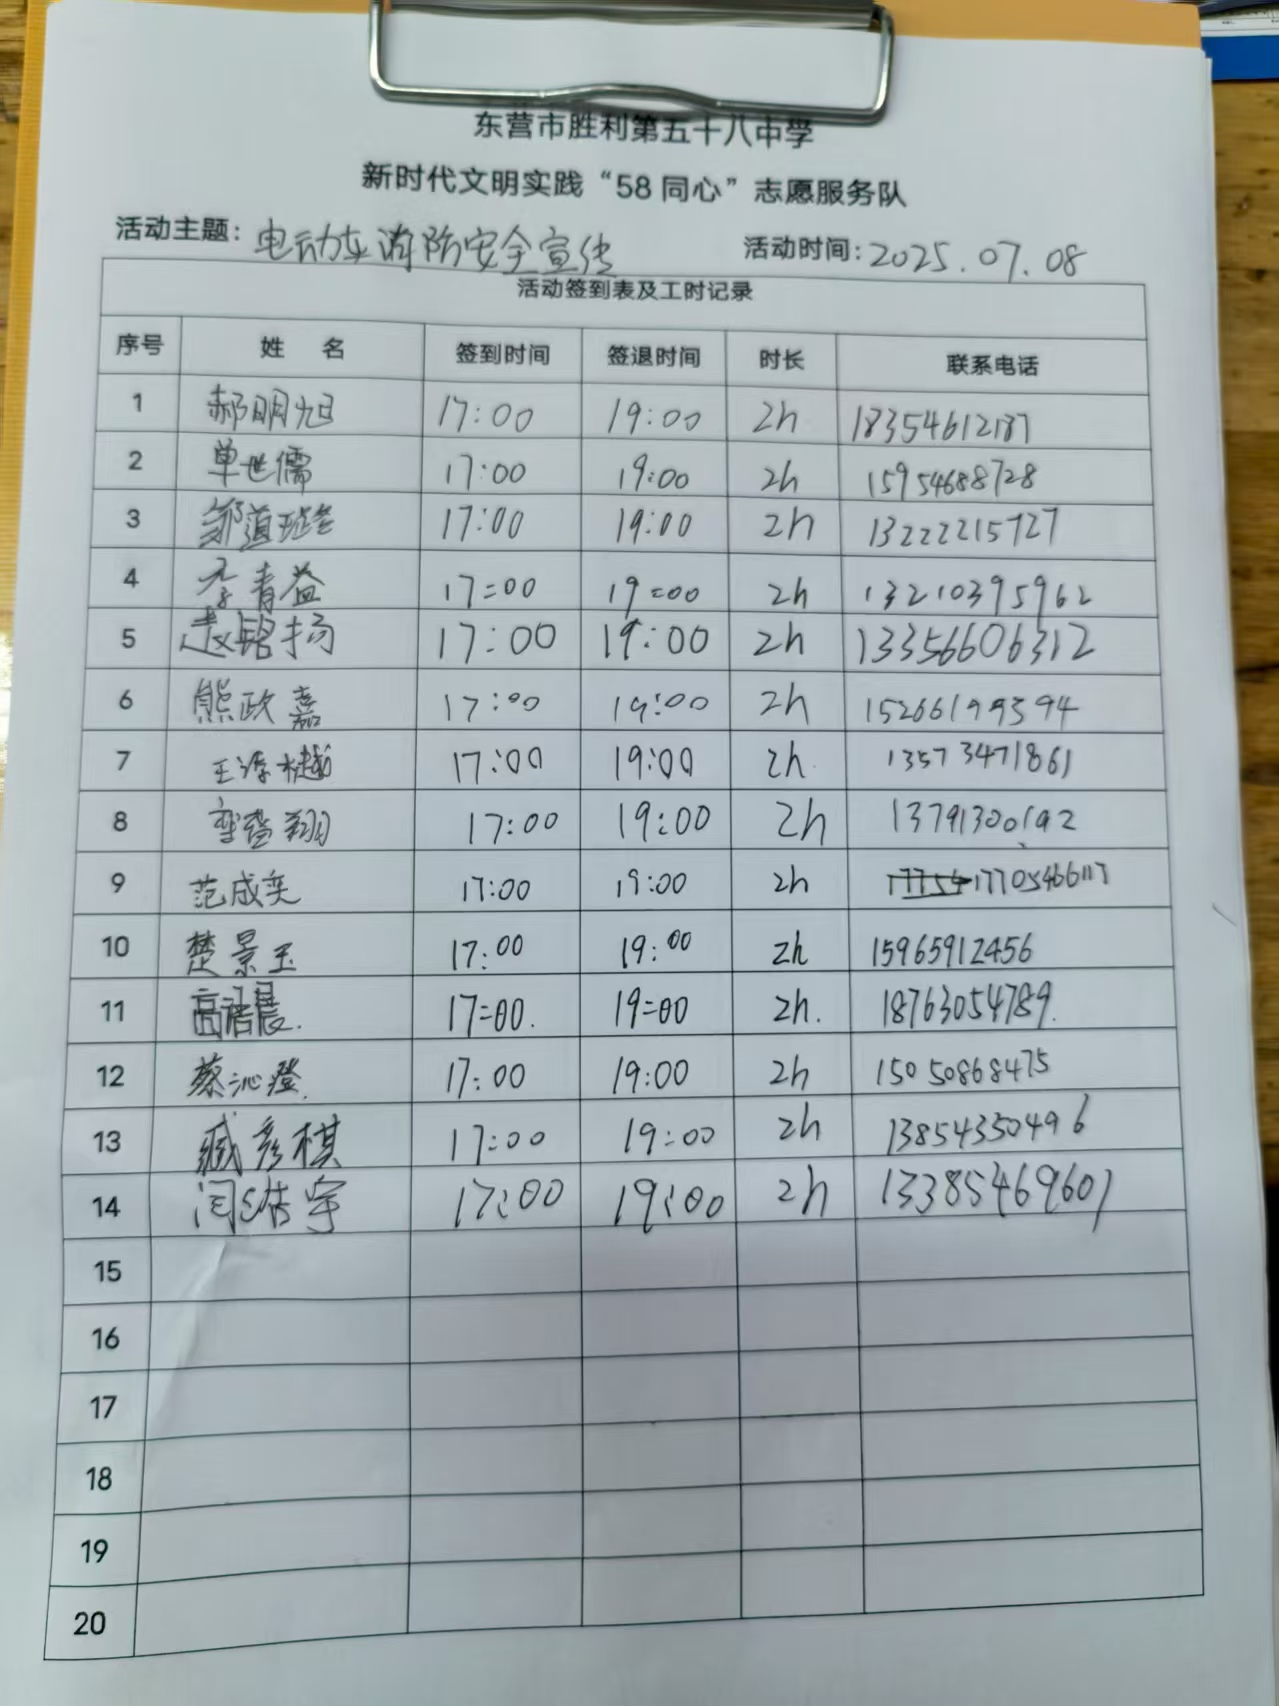 东营市胜利第五十八中学
新时代文明实践“58同心”志愿服务队
活动主题：电动车消防安全宣传 活动时间：2025.07.08
活动签到表及工时记录
序号 姓 名 签到时间 签退时间 时长 联系电话
1 郝明旭 17:00 19:00 2h 18354612187
2 单世儒 17:00 19:00 2h 15954688728
3 郭道 17:00 19:00 2h 13222215727
4 李青益 17=00 19=00 2h 13210395962
5 赵铭扬 17:00 19:00 2h 13356606312
6 熊政嘉 17:00 19:00 2h 15266199594
7 王 17:00 19:00 2h 13573471861
8 翔 17:00 19:00 2h 13791300192
9 范成奕 17:00 19:00 2h 17754 17705466117
10 楚景玉 17:00 19:00 2h 15965912456
11 高语晨. 17=00. 19=00 2h. 18763054789.
12 蔡沁澄. 17:00 19:00 2h 15050868475
13 臧彦棋 17:00 19:00 2h 13854350496
14 闫浩宇 17:00 19:00 2h 13385469601
15
16
17
18
19
20